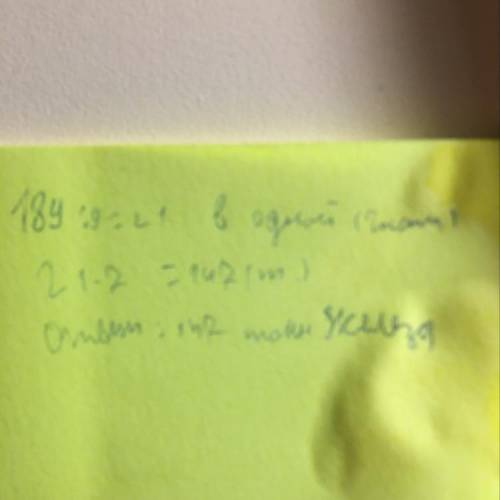 189:9=21 в одной
21·7=147(т.)
Ответ: 147 тонн